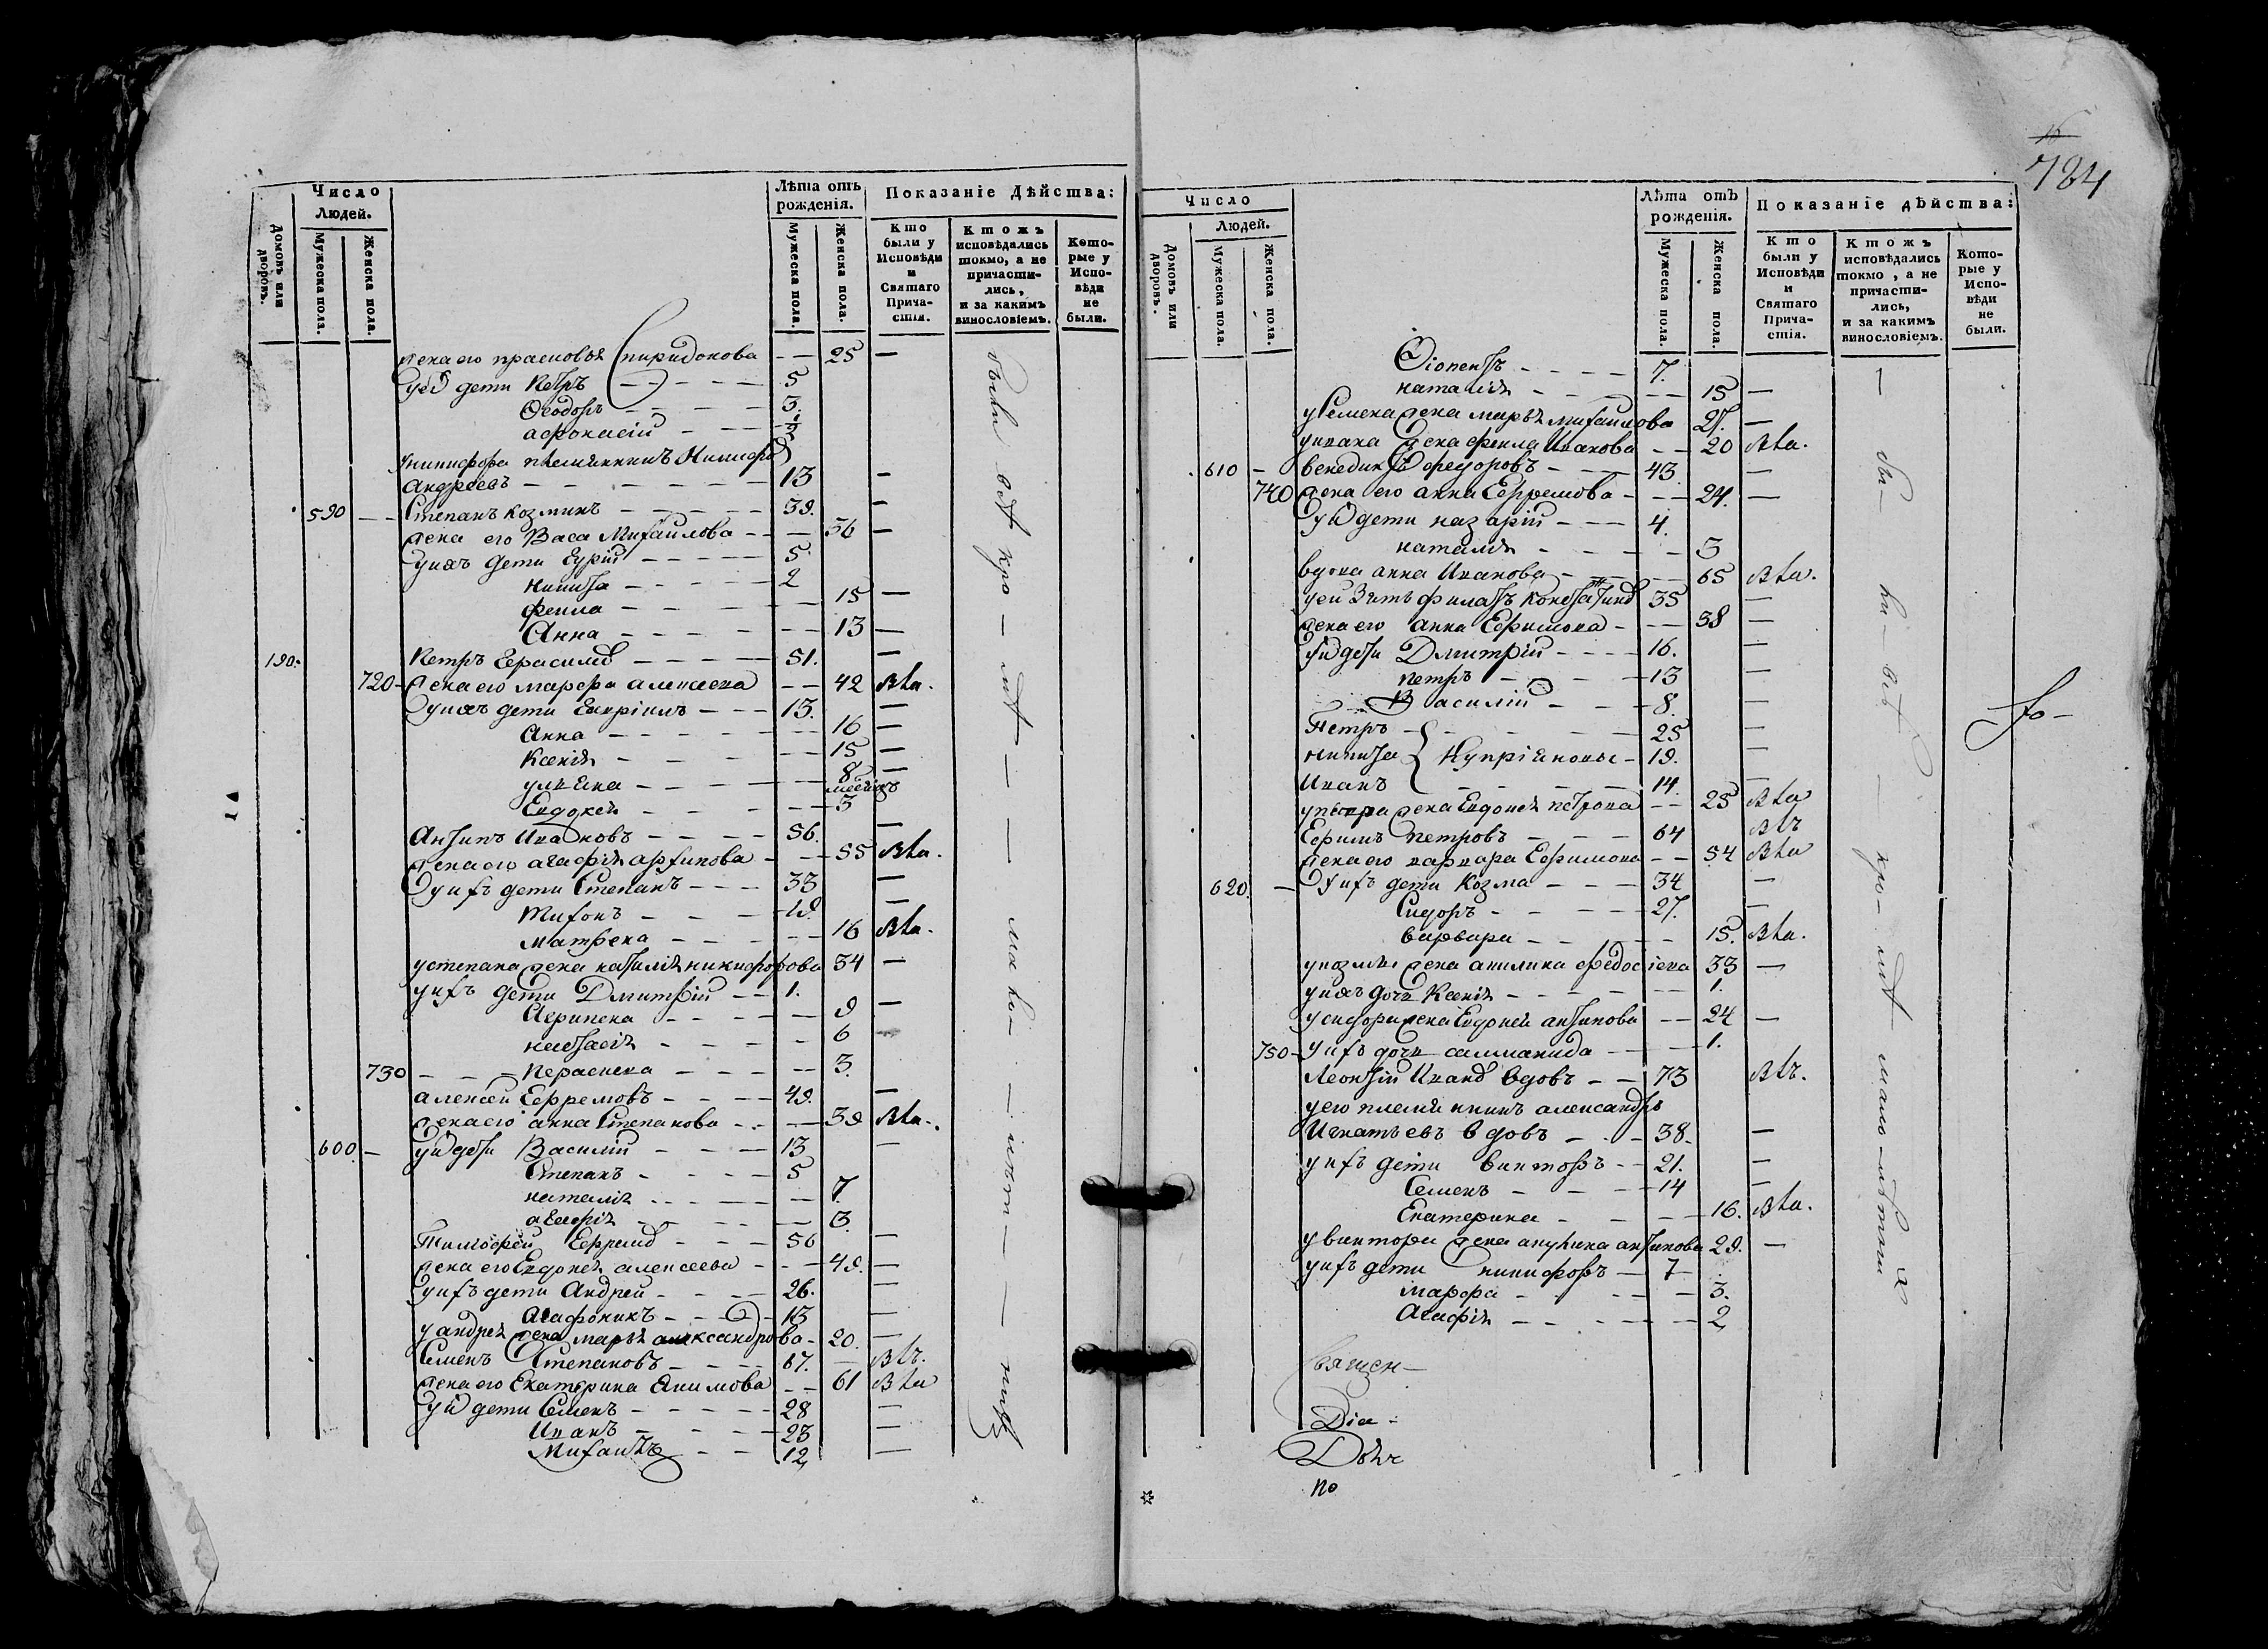 Число
Людей.
Лѣта отъ
рожденія.
Показаніе Дѣйства:
Домовъ или
дворовъ.
Мужеска пола.
Женска пола.
Мужеска пола.
Женска пола.
Кто
были у
Исповѣди
и
Святаго
Прича-
стія.
Ктожъ
исповѣдались
токмо, а не
причасти-
лись,
и за какимъ
винословіемъ.
Кото-
рые у
Испо-
вѣди
не
были.
жена его прасковья Спиридонова — — 25 —
У нй дети Петръ — — — 5
Ѳеодоръ — — — 3
афонасій — — —
У никифора племянникъ Никифо
Андреевъ — — — 13 —
590 — — Степанъ козминъ — — — 39. —
жена его Васа Михаилова — — 36 —
У нихъ дети Еурій — — — 5
никита — — — 2
фекла — — — 15 —
Анна — — — 13 —
190. Петръ Герасимо — — — 51. —
720 — жена его марфа алексеева — — 42 Вла.
У нихъ дети Еукріянъ — — — 13. —
Анна — — — 16 —
Ксенія — — — 15 —
ульяна — — — 8 —
месяцовъ
Евдокея — — — 3
Антипъ Ивановъ — — — 56. —
жена его агафія архипова — — 55 Вла.
У нихъ дети Степанъ — — — 33 —
Тихонъ — — — 19. —
матрена — — — 16 Вла.
у степана жена наталія никифорова 34 —
у нихъ дети Дмитрій — — 1.
Агрипена — — — 9 —
настасія — — — 6 —
730 — — — Параскева — — — 3.
алексей Ефремовъ — — — 49. —
жена его анна Степанова — — 39 Вла.
600 — У нй дети Василій — — — 13 —
Степанъ — — — 5
наталія — — — 7.
агафія — — — 3.
Тимофей Ефремо — — — 56 —
жена его Евдокея алексеева — — 49. —
у нихъ дети Андрей — — — 26. —
Агафоникъ — — — 13 —
у андрея жена марья александрова — 20. —
Семенъ Степановъ — — — 67. — Влъ.
жена его Екатерина Акимова — — 61 Вла
У нй дети Семенъ — — — 28 —
Иванъ — — — 23 —
Михаилъ — — — 12 —
784
Число
Людей.
Лѣта отъ
рожденія.
Показаніе дѣйства:
Домовъ или
дворовъ.
Мужеска пола.
Женска пола.
Мужеска пола.
Женска пола.
Кто
были у
Исповѣди
и
Святаго
Прича-
стія.
Ктожъ
исповѣдались
токмо, а не
причасти-
лись,
и за какимъ
винословіемъ.
Кото-
рые у
Испо-
вѣди
не
были.
— — — 7.
наталія — — — 15 —
у Семена жена марья михаилова 27. —
у ивана жена фекла Иванова — — 20 Вла.
610 — Венедиктъ федоровъ — — — 43 —
740 жена его анна Ефремова — — — 24. —
У нй дети назарій — — — 4.
наталія — — — 3
вдова анна Иванова — — — 65 Вла.
у ей Зять филатъ константино 35 —
жена его анна Ефимова — — — 38 —
У нй дети Дмитрій — — — 16. —
петръ — — — 13 —
Василій — — — 8. —
Петръ — — — 25 —
никита Купріяновы — 19. —
Иванъ — — — 14. —
у петра жена Евдокея петрова — — 25 Вла
Ефимъ петровъ — — — 64 Влъ
жена его варвара Ефимова — — 54 Вла
620. — У нихъ дети Козма — — — 34 —
Сидоръ — — — 27. —
варвара — — — 15. Вла.
у козмы жена акилина федосіева 33 —
у нихъ дочь Ксенія — — — 1.
у сидора жена Евдокея антипова — — 24 —
750 — У нихъ дочь саломанида — — 1.
Леонтій Ивано вдовъ — — 73 Влъ.
у его племянникъ александръ
Игнатьевъ вдовъ — — — 38. —
у нихъ дети викторъ — — 21. —
Семенъ — — — 14 —
Екатерина — — — 16. Вла.
у виктора жена акулина антипова 29. —
у нихъ дети никифоръ — 7
марфа — — — 3.
Агафія — — — 2
Священ—
Діа-
По